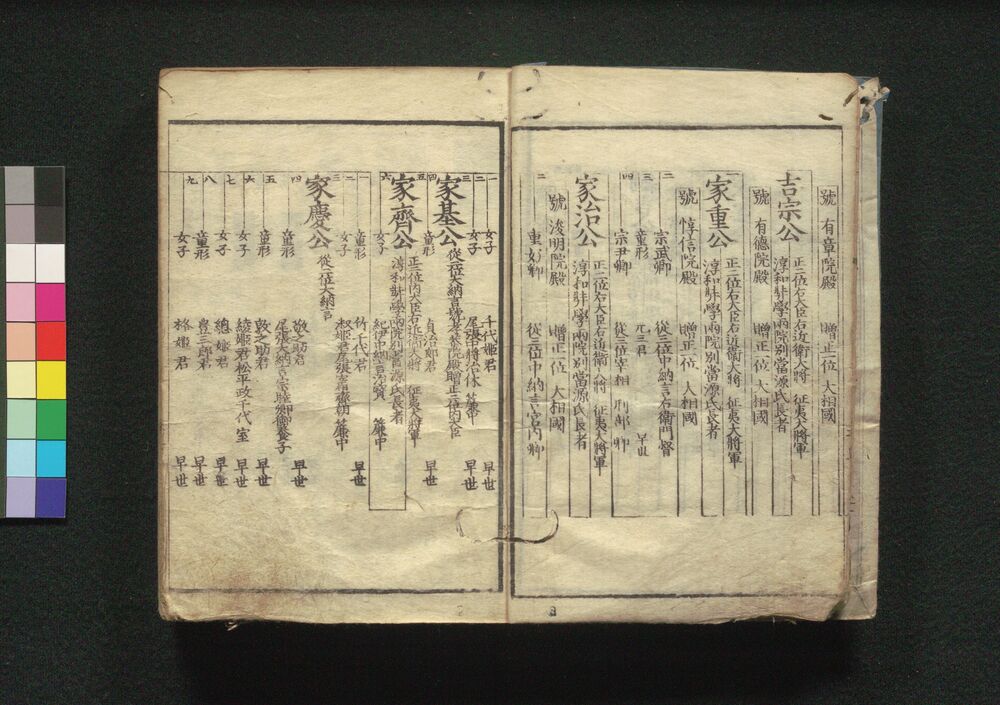 號 有章院殿 贈正一位 大相國
吉宗公 正二位右大臣右近衛大將 征夷大將軍
淳和奬學兩院別當源氏長者
號 有德院殿 贈正一位 大相國
一
家重公 正二位右大臣右近衛大將 征夷大將軍
淳和奬學兩院別當源氏長者
號 惇信院殿 贈正一位 大相國
二 宗武卿 從三位中納言右衛門督
三 童形 元三君 早世
四 宗尹卿 從三位宰相 刑部卿
家治公 正二位右大臣右近衛大將 征夷大將軍
淳和奬學兩院別當源氏長者
號 浚明院殿 贈正一位 大相國
二 重好卿 從三位中納言宮内卿
一 女子 千代姬君 早世
二 女子 尾張中將治休 簾中 早世
三
家基公 從一位大納言 贈正二位内大臣
四 童形 貞治郎君 早世
五
家齊公 正二位内大臣右近衛大將 征夷大將軍
淳和奬學兩院別當源氏長者
六 女子 紀伊中納言治寶 簾中
一 童形 竹千代君 早世
二 女子 淑姬君尾張宰相齊朝 簾中
三
家慶公 從一位大納言
四 童形 敬之助君 早世
尾張大納言宗睦卿御養子
五 童形 敦之助君 早世
六 女子 綾姬君松平政千代室 早世
七 女子 總姬君 早世
八 童形 豊三郎君 早世
九 女子 格姬君 早世